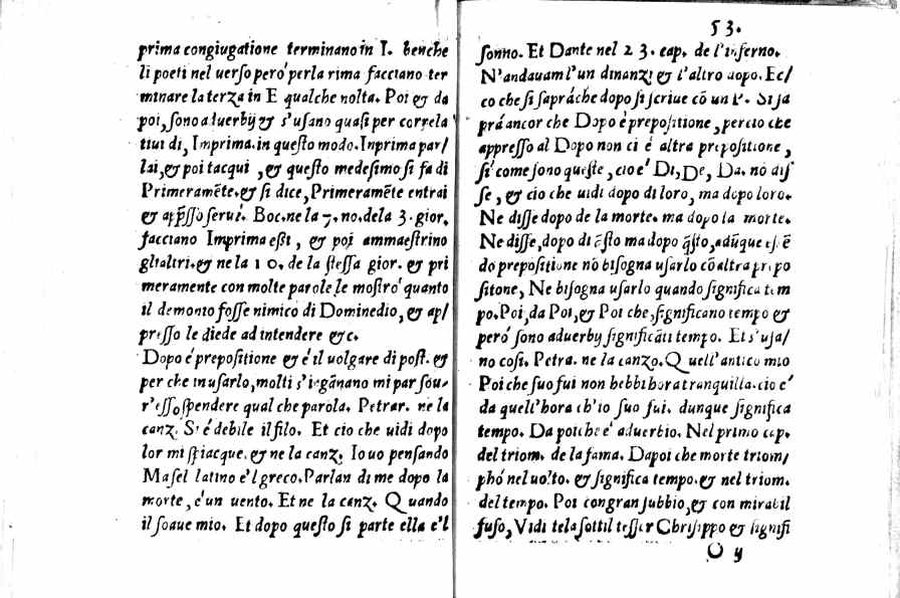 prima congiugatione terminano in I. benche
li poeti nel uerso però per la rima facciano ter
minare la terza in E qualche nolta. Poi & da
poi, sono aduerbij & s'usano quasi per correla
tiui di, Imprima. in questo modo. Inprima par/
lai, & poi tacqui, & questo medesimo si fa di
Primeramēte. & si dice, Primeramēte entrai
& app̄sso seruì. Boc. ne la 7. no. dela 3. gior.
facciano Imprima essi, & poi ammaestrino
gli altri. & ne la 10. de la stessa gior. & pri
meramente con molte parole le mostrò quanto
il demonto fosse nimico di Dominedio, & ap/
presso le diede ad intendere &c.
Dopo è prepositione & è il uolgare di post. &
per che in usarlo, molti s'ingānano mi par sou/
r'esso spendere qual che parola. Petrar. ne la
canz. S'è debile il filo. Et cio che uidi dopo
lor mi spiacque. & ne la canz. Io uo pensando
Masel latino e'l greco. Parlan di me dopo la
morte, è un uento. Et ne la canz. Quando
il soaue mio. Et dopo questo si parte ella e'l
53.
sonno. Et Dante nel 23. cap. de l'inferno.
N'andauam l'un dinanzi & l'altro dopo. Ec/
co che si saprà che dopo si scriue cō un P. Si sa
prà ancor che Dopo è prepositione, percio che
appresso al Dopo non ci è altra prepositione,
sì come sono queste, cio è Di, De, Da. nō dis
se, & cio che uidi dopo di loro, ma dopo loro.
Ne disse dopo de la morte. ma dopo la morte.
Ne disse, dopo di q̄sto ma dopo q̄sto, adūque
do prepositione nō bisogna usarlo cō altra prepo
sitone, Ne bisogna usarlo quando significa tem
po. Poi, da Poi, & Poi che, significano tempo &
però sono aduerby significāti tempo. Et s'usa/
no cosi. Petra. ne la canzo. Quell'antico mio
Poi che suo fui non hebbi hora tranquilla. cio è
da quell'hora ch'io suo fui. dunque significa
tempo. Da poi che è aduerbio. Nel primo cap.
del triom. de la fama. Dapoi che morte triom/
phò nel uolto. & significa tempo. & nel triom.
del tempo. Poi con gran subbio, & con mirabil
fuso, Vidi tela sottil tesser Chrisippo & signifi
O y